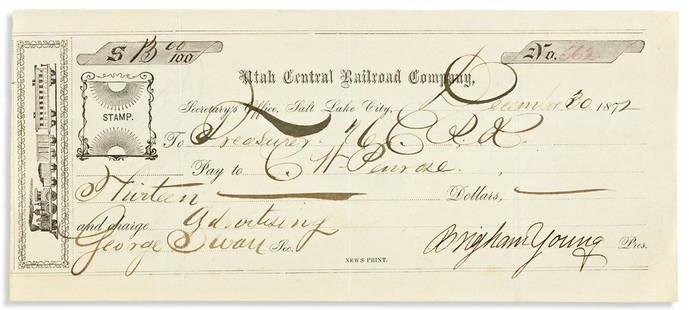 $ 13 00/100
No. 562
Utah Central Railroad Company,
Secretary's Office, Salt Lake City, December 30 1872
STAMP.
To Treasurer U. C. R. R.
Pay to C W Penrose
Thirteen Dollars,
and charge Advertising
George Swan Sec.
Brigham Young Pres.
NEWS PRINT.